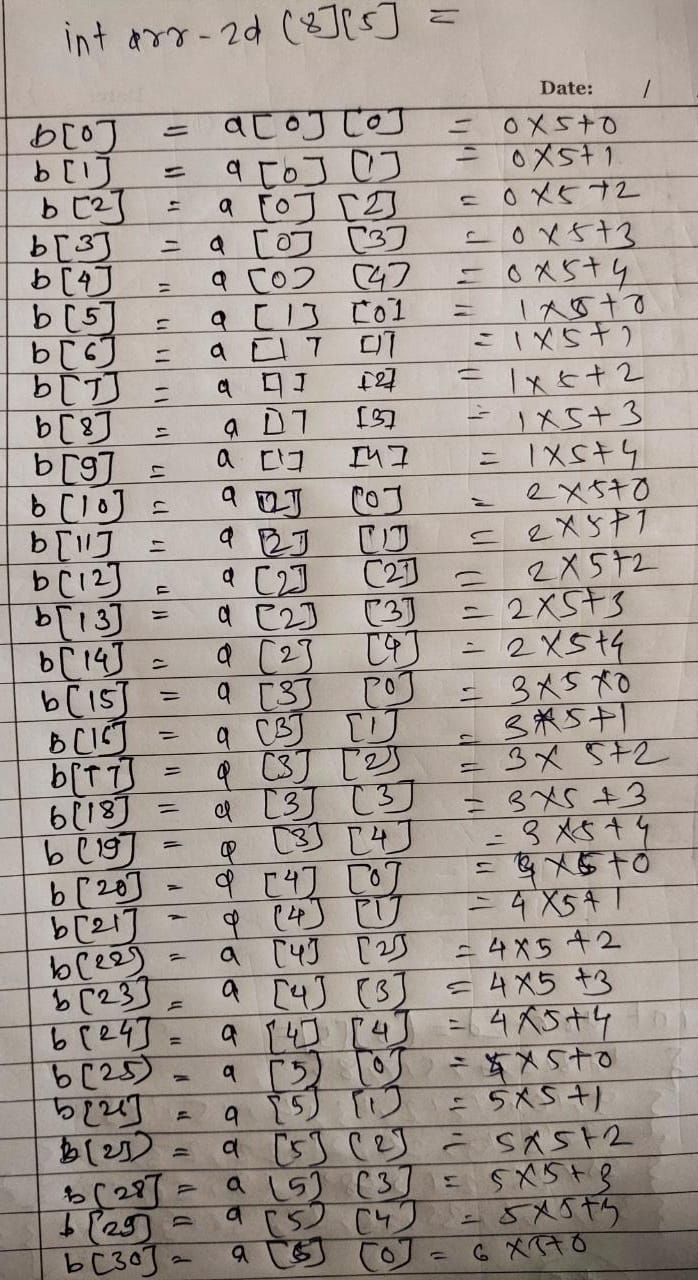 int arr-2d [8][5] =
Date: /
b[0] = a[0] [0] = 0x5+0
b[1] = a[0] [1] = 0x5+1
b[2] = a[0] [2] = 0x5+2
b[3] = a[0] [3] = 0x5+3
b[4] = a[0] [4] = 0x5+4
b[5] = a[1] [0] = 1x5+0
b[6] = a[1] [1] = 1x5+1
b[7] = a[1] [2] = 1x5+2
b[8] = a[1] [3] = 1x5+3
b[9] = a[1] [4] = 1x5+4
b[10] = a[2] [0] = 2x5+0
b[11] = a[2] [1] = 2x5+1
b[12] = a[2] [2] = 2x5+2
b[13] = a[2] [3] = 2x5+3
b[14] = a[2] [4] = 2x5+4
b[15] = a[3] [0] = 3x5+0
b[16] = a[3] [1] = 3x5+1
b[17] = a[3] [2] = 3x5+2
b[18] = a[3] [3] = 3x5+3
b[19] = a[3] [4] = 3x5+4
b[20] = a[4] [0] = 4x5+0
b[21] = a[4] [1] = 4x5+1
b[22] = a[4] [2] = 4x5+2
b[23] = a[4] [3] = 4x5+3
b[24] = a[4] [4] = 4x5+4
b[25] = a[5] [0] = 5x5+0
b[26] = a[5] [1] = 5x5+1
b[27] = a[5] [2] = 5x5+2
b[28] = a[5] [3] = 5x5+3
b[29] = a[5] [4] = 5x5+4
b[30] = a[6] [0] = 6x5+0